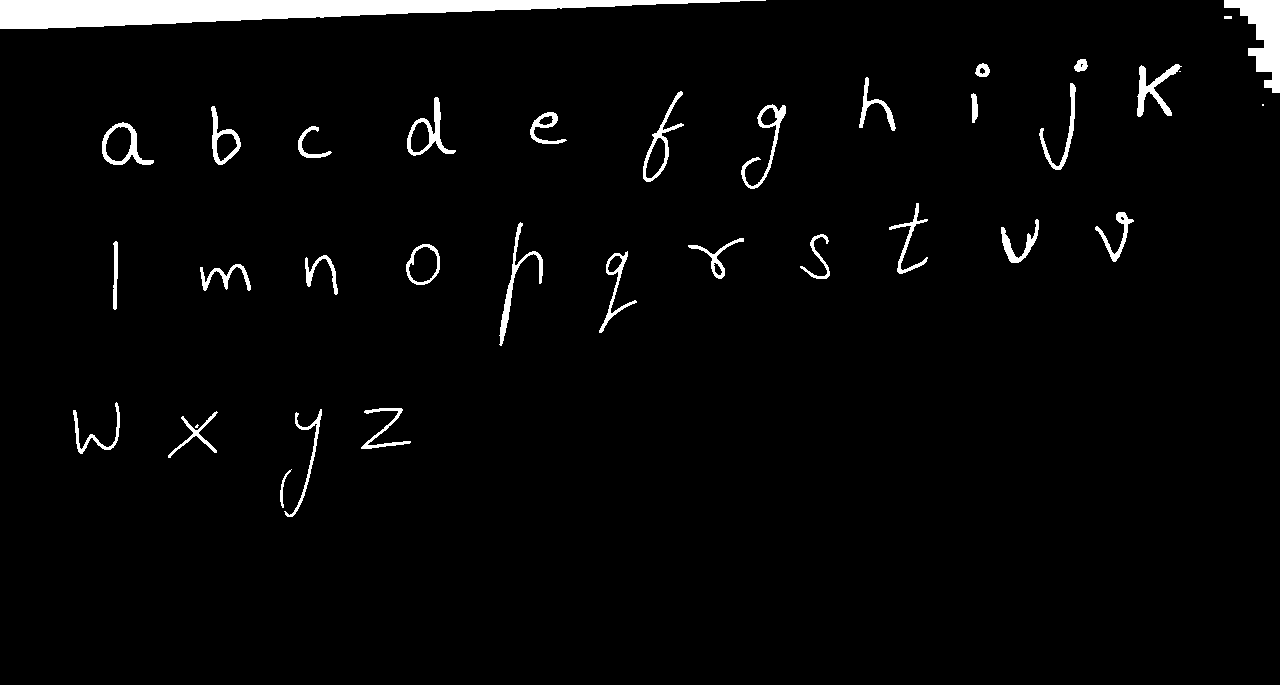 a b c d e f g h i j k
l m n o p q r s t u v
w x y z